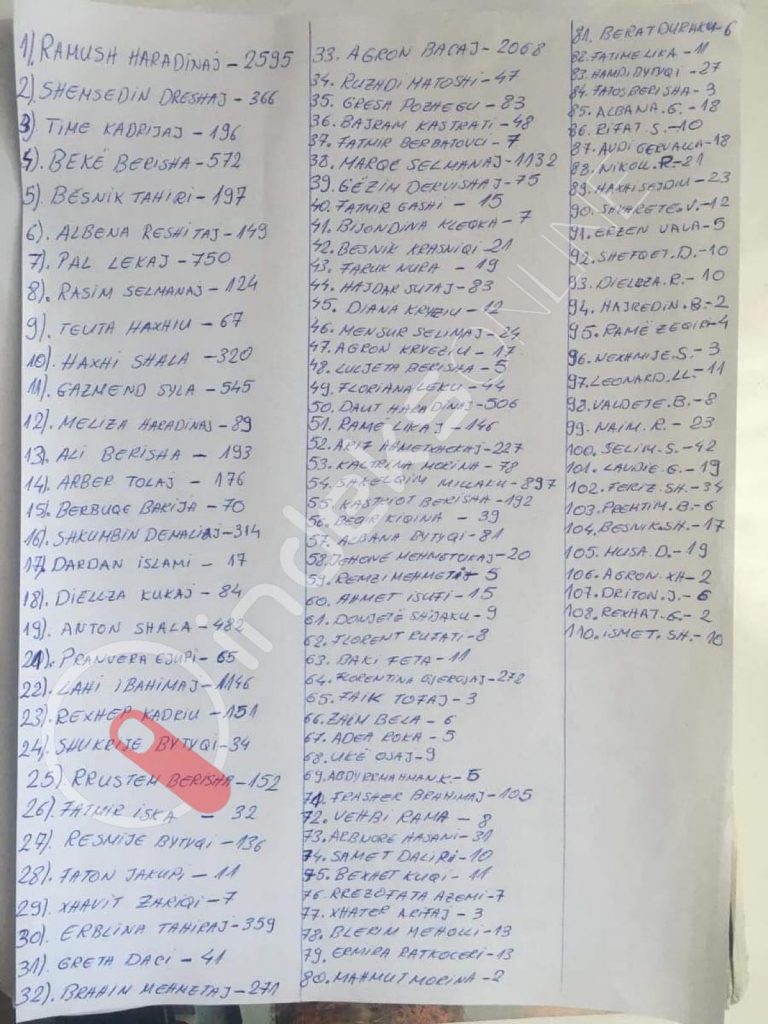 1). RAMUSH HARADINAJ - 2595
2). SHEMSEDIN DRESHAJ - 366
3) TIME KADRIJAJ - 196
4). BEKË BERISHA - 572
5). BESNIK TAHIRI - 197
6). ALBENA RESHITAJ - 149
7). PAL LEKAJ - 750
8). RASIM SELMANAJ - 124
9). TEUTA HAXHIU - 67
10). HAXHI SHALA - 320
11). GAZMEND SYLA - 545
12). MELIZA HARADINAJ - 89
13. ALI BERISHA - 193
14). ARBER TOLAJ - 176
15). BERBUQE BAKIJA - 70
16). SHKUMBIN DEMALIAJ - 314
17). DARDAN ISLAMI - 17
18). DIELLZA KUKAJ - 84
19). ANTON SHALA - 482
21). PRANVERA EJUPI - 65
22). LAHI IBAHIMAJ - 1146
23). REXHEP KADRIU - 151
24). SHUKRIJE BYTYQI - 34
25). RRUSTEM BERISHA - 152
26). FATMIR ISKA - 32
27). RESMIJE BYTYQI - 136
28). FATON JAKUPI - 11
29). XHAVIT ZARIQI - 7
30). ERBLINA TAHIRAJ - 359
31). GRETA DACI - 41
32). BRAHIN MEHMETAJ - 271
33. AGRON BACAJ - 2068
34. RUZHDI MATOSHI - 47
35. GRESA POZHEGU - 83
36. BAJRAM KASTRATI - 48
37. FATMIR BERBATOVCI - 7
38. MARQE SELMANAJ - 1132
39. GËZIM DERVISHAJ - 75
40. FATMIR GASHI - 15
41. BIJONDINA KLEQKA - 7
42. BESNIK KRASNIQI - 21
43. FARUK NURA - 19
44. HAJDAR SUTAJ - 83
45. DIANA KRYZIU - 12
46. MENSUR SELIMAJ - 24
47. AGRON KRYEZIU - 17
48. LULJETA BERISHA - 5
49. FLORIANA LEKU - 44
50. DAUT HARADINAJ - 506
51. RAME LIKAJ - 146
52. ARIZ AHMETXHEKAJ - 227
53. KALTRINA MORINA - 78
54. SHKELQIM MILLAKU - 897
55. KASTRIOT BERISHA - 192
56. BEQIR KIQINA - 39
57. ALBANA BYTYQI - 81
58. DEHONË MEHMETUKAJ - 20
59. REMZI MEHMETI - 5
60. AHMET ISUFI - 15
61. DONJETË SHIJAKU - 9
62. FLORENT RUFATI - 8
63. BAKI FETA - 11
64. FLORENTINA GJERQJAJ - 272
65. FAIK TOFAJ - 3
66. ZAIM BELA - 6
67. ADEA ROKA - 5
68. UKË OSAJ - 9
69. ABDYRRAHMAN K. - 5
71. FRASHER BRAHIMAJ - 105
72. VEHBI RAMA - 8
73. ARBNORE HASANI - 31
74. SAMET DALIRI - 10
75. BEXHET KUQI - 11
76. RREZOFATA AZEMI - 7
77. XHATER ARIFAJ - 3
78. BLERIM MEHOLLI - 13
79. ERMIRA RATKOCERI - 13
80. MAHMUT MORINA - 2
81. BERAT DURAKU - 6
82. FATIME LIKA - 11
83. HAMDI BYTYQI - 27
84. FATOS BERISHA - 3
85. ALBANA. G. - 18
86. RIFAT S. - 10
87. AVDI GERVALLA - 18
88. NIKOLL. R - 21
89. HAXHI SEJDIU - 23
90. SAHARETE. V. - 12
91. ERZEN VALA - 5
92. SHEFQET. D. - 10
93. DIELLZA. R. - 10
94. HAJREDIN. B. - 2
95. RAMË ZEQIRI - 4
96. NEXHMIJE. S. - 3
97. LEONARD. LL. - 11
98. VALDETE. B. - 8
99. NAIM. R. - 23
100. SELIM. S. - 42
101. LAVDIE. G. - 19
102. FERIZ. SH. - 34
103. PREHTIM. B. - 6
104. BESNIK. SH. - 17
105. MUSA. D. - 19
106. AGRON. XH - 2
107. DRITON. J. - 6
108. REXHAT. G. - 2
110. ISMET. SH. - 10
indeksONLINE